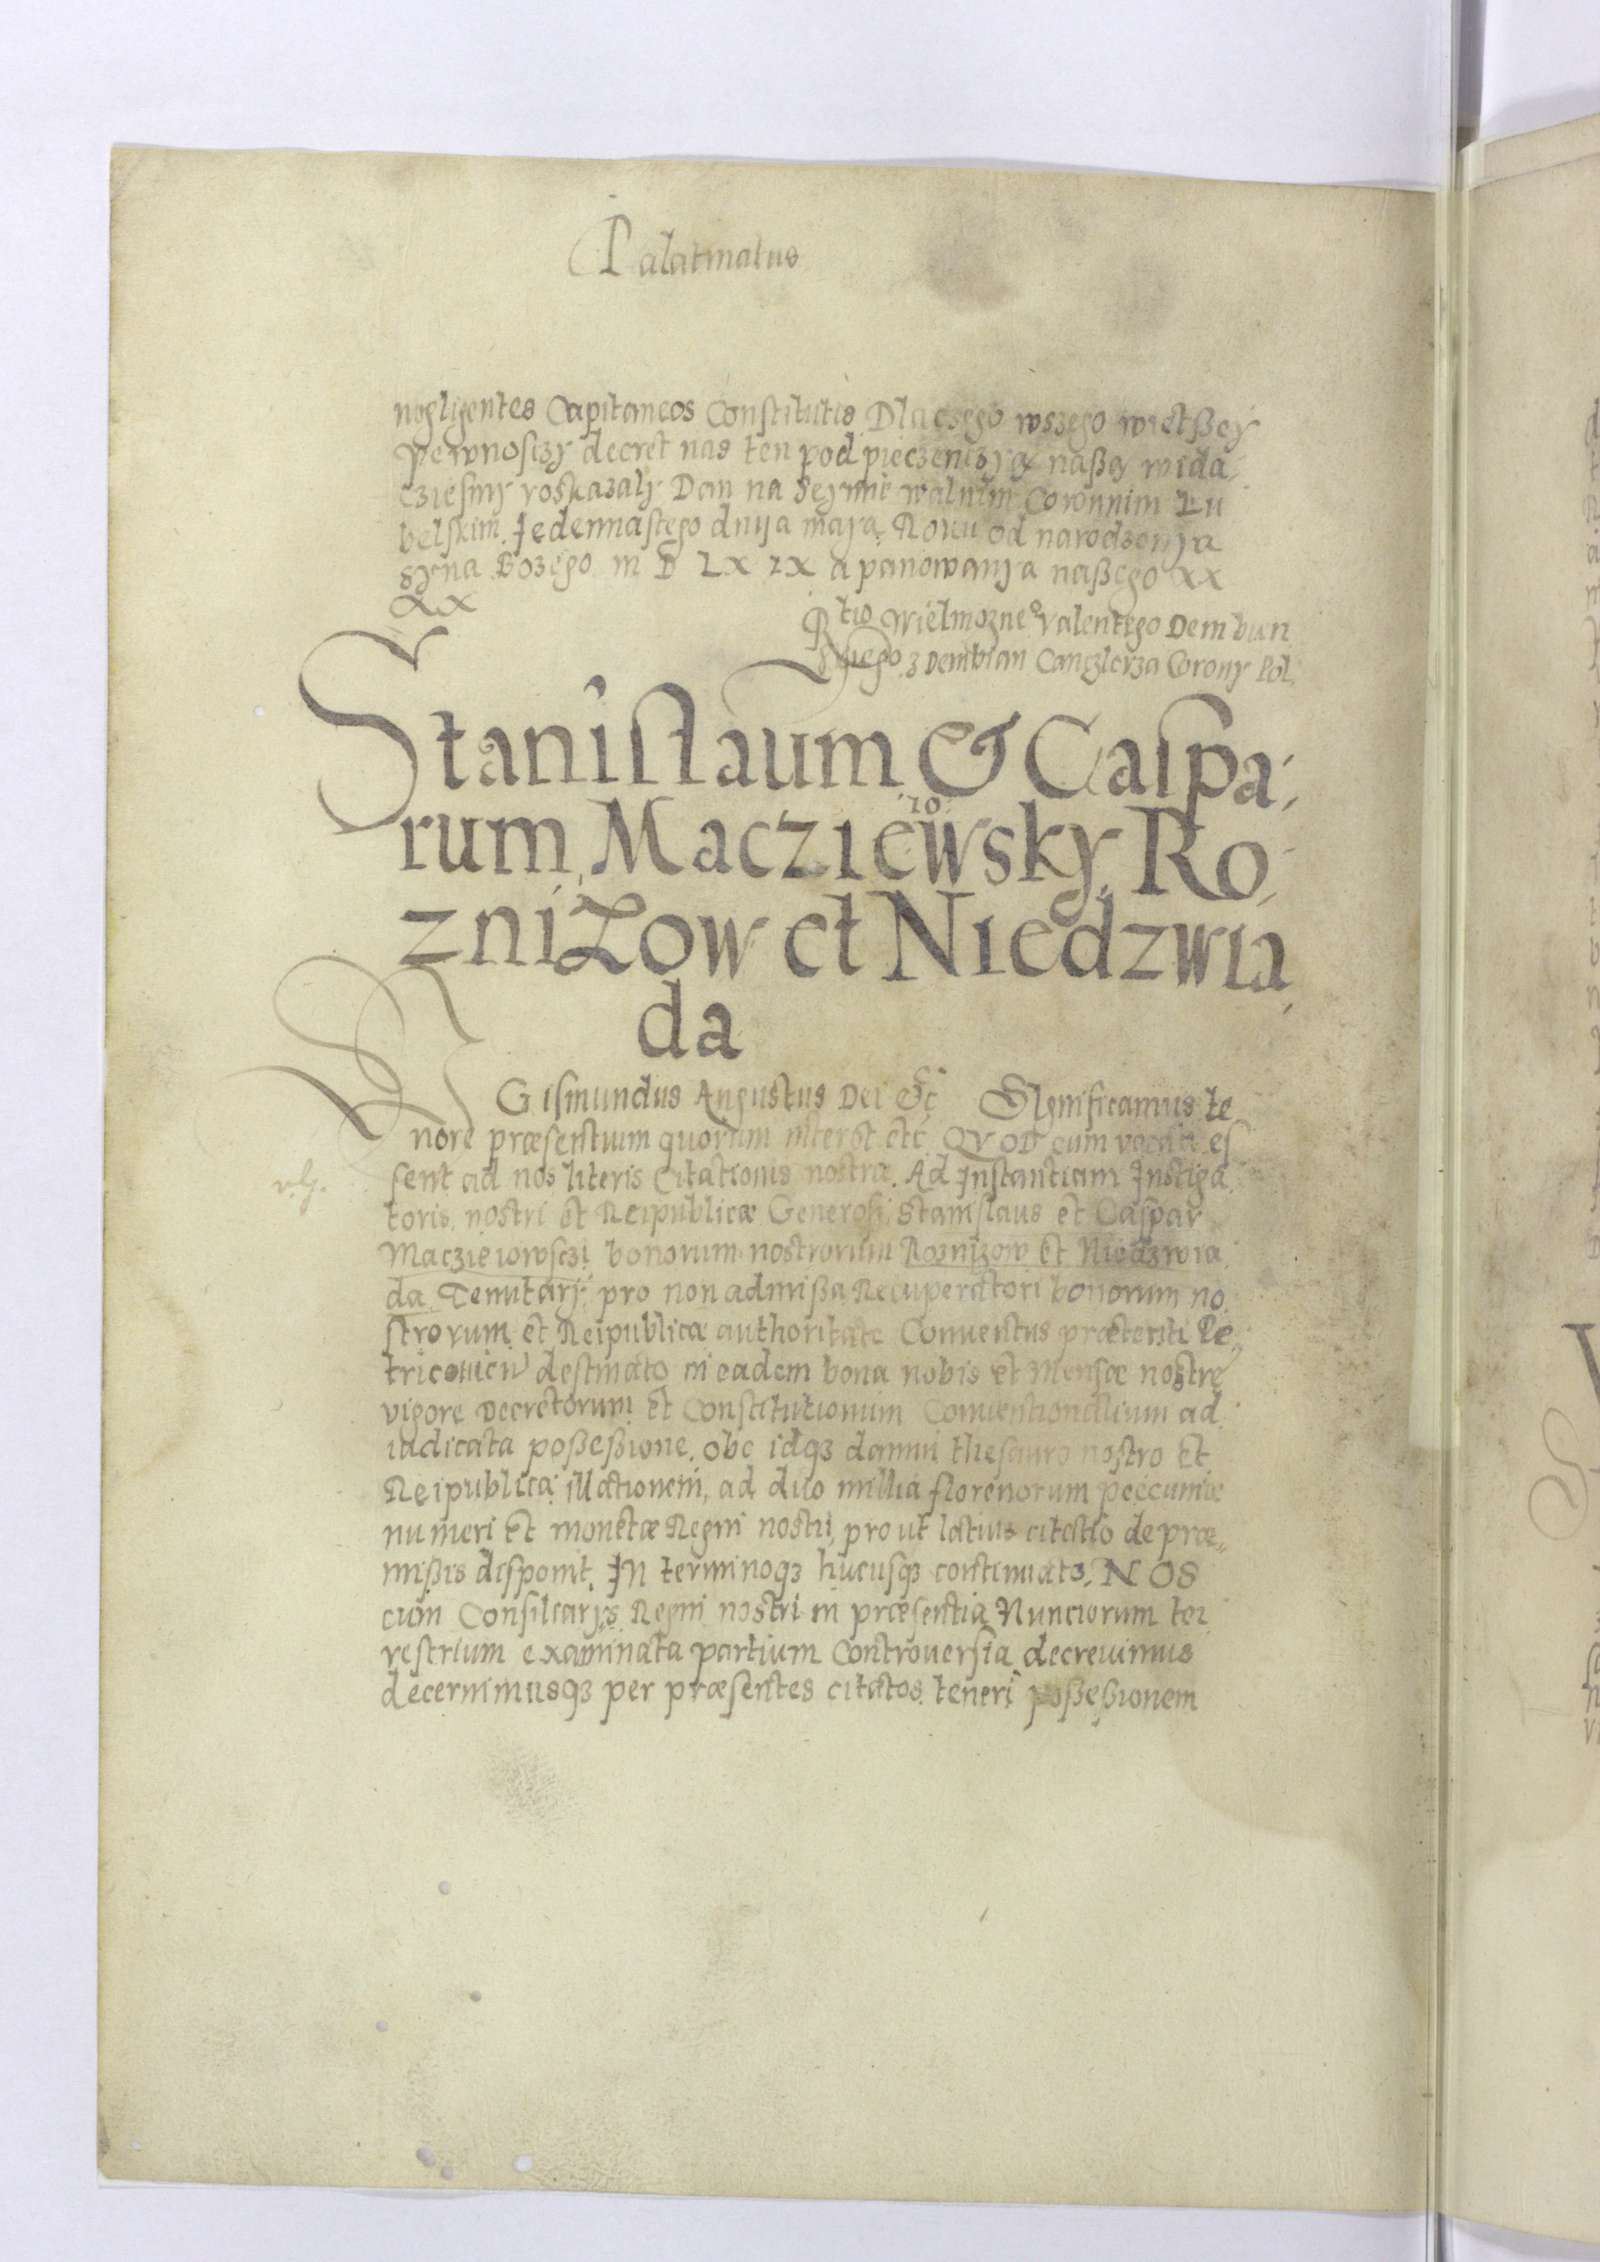 Palatinatus
negligentes Capitaneos Constitutis Dlaczego wszego wietßey
pewnosczy decret nas ten pod pieczenczyą naßą wida
cziesmy roskazaly Dan na Seymie walnim Coronnim Lu
belskim Jedennastego dnya maja Roku od narodzenya
Syna Bozego M D LX IX a panowanya naßego XX
XX
Rtio Wielmozneo Valentego Dembien
skiego z Dembian Canczlerza Corony Pol.
Stanislaum & Caspa
rum Macziewsky Ro
10
zniZow et Niedzwia
da
Gismundus Augustus Dei &c Significamus te
nore præsentium quorum interest etc. QVOD cum vocati es
sent ad nos literis Citationis nostræ. Ad Instantiam Instiga
v.g.
toris nostri et Reipublicæ Generosi Stanislaus et Caspar
Maczieiowsczi bonorum nostrorum Roznizow et Niedzwia
da Tenutarij pro non admißa Recuperatori bonorum no
strorum et Reipublicæ authoritate Conuentus præteriti Pe
tricouien destinato in eadem bona nobis et Mensæ nostre
vigore Decretorum et Constitutionum Conuentionalium ad
iudicata poßeßione. obc idqz damni thesauro nostro et
Reipublicæ illationem, ad duo millia florenorum peccuniæ
numeri et monetæ Regni nostri, pro ut latius citatio de præ
mißis disponit. IN terminoqz hucusqz continuato. NOS
cum Consiliarijs Regni nostri in præsentia Nunciorum ter
restrium examinata partium Controuersia decreuimus
decernimusqz per præsentes citatos teneri poßeßionem